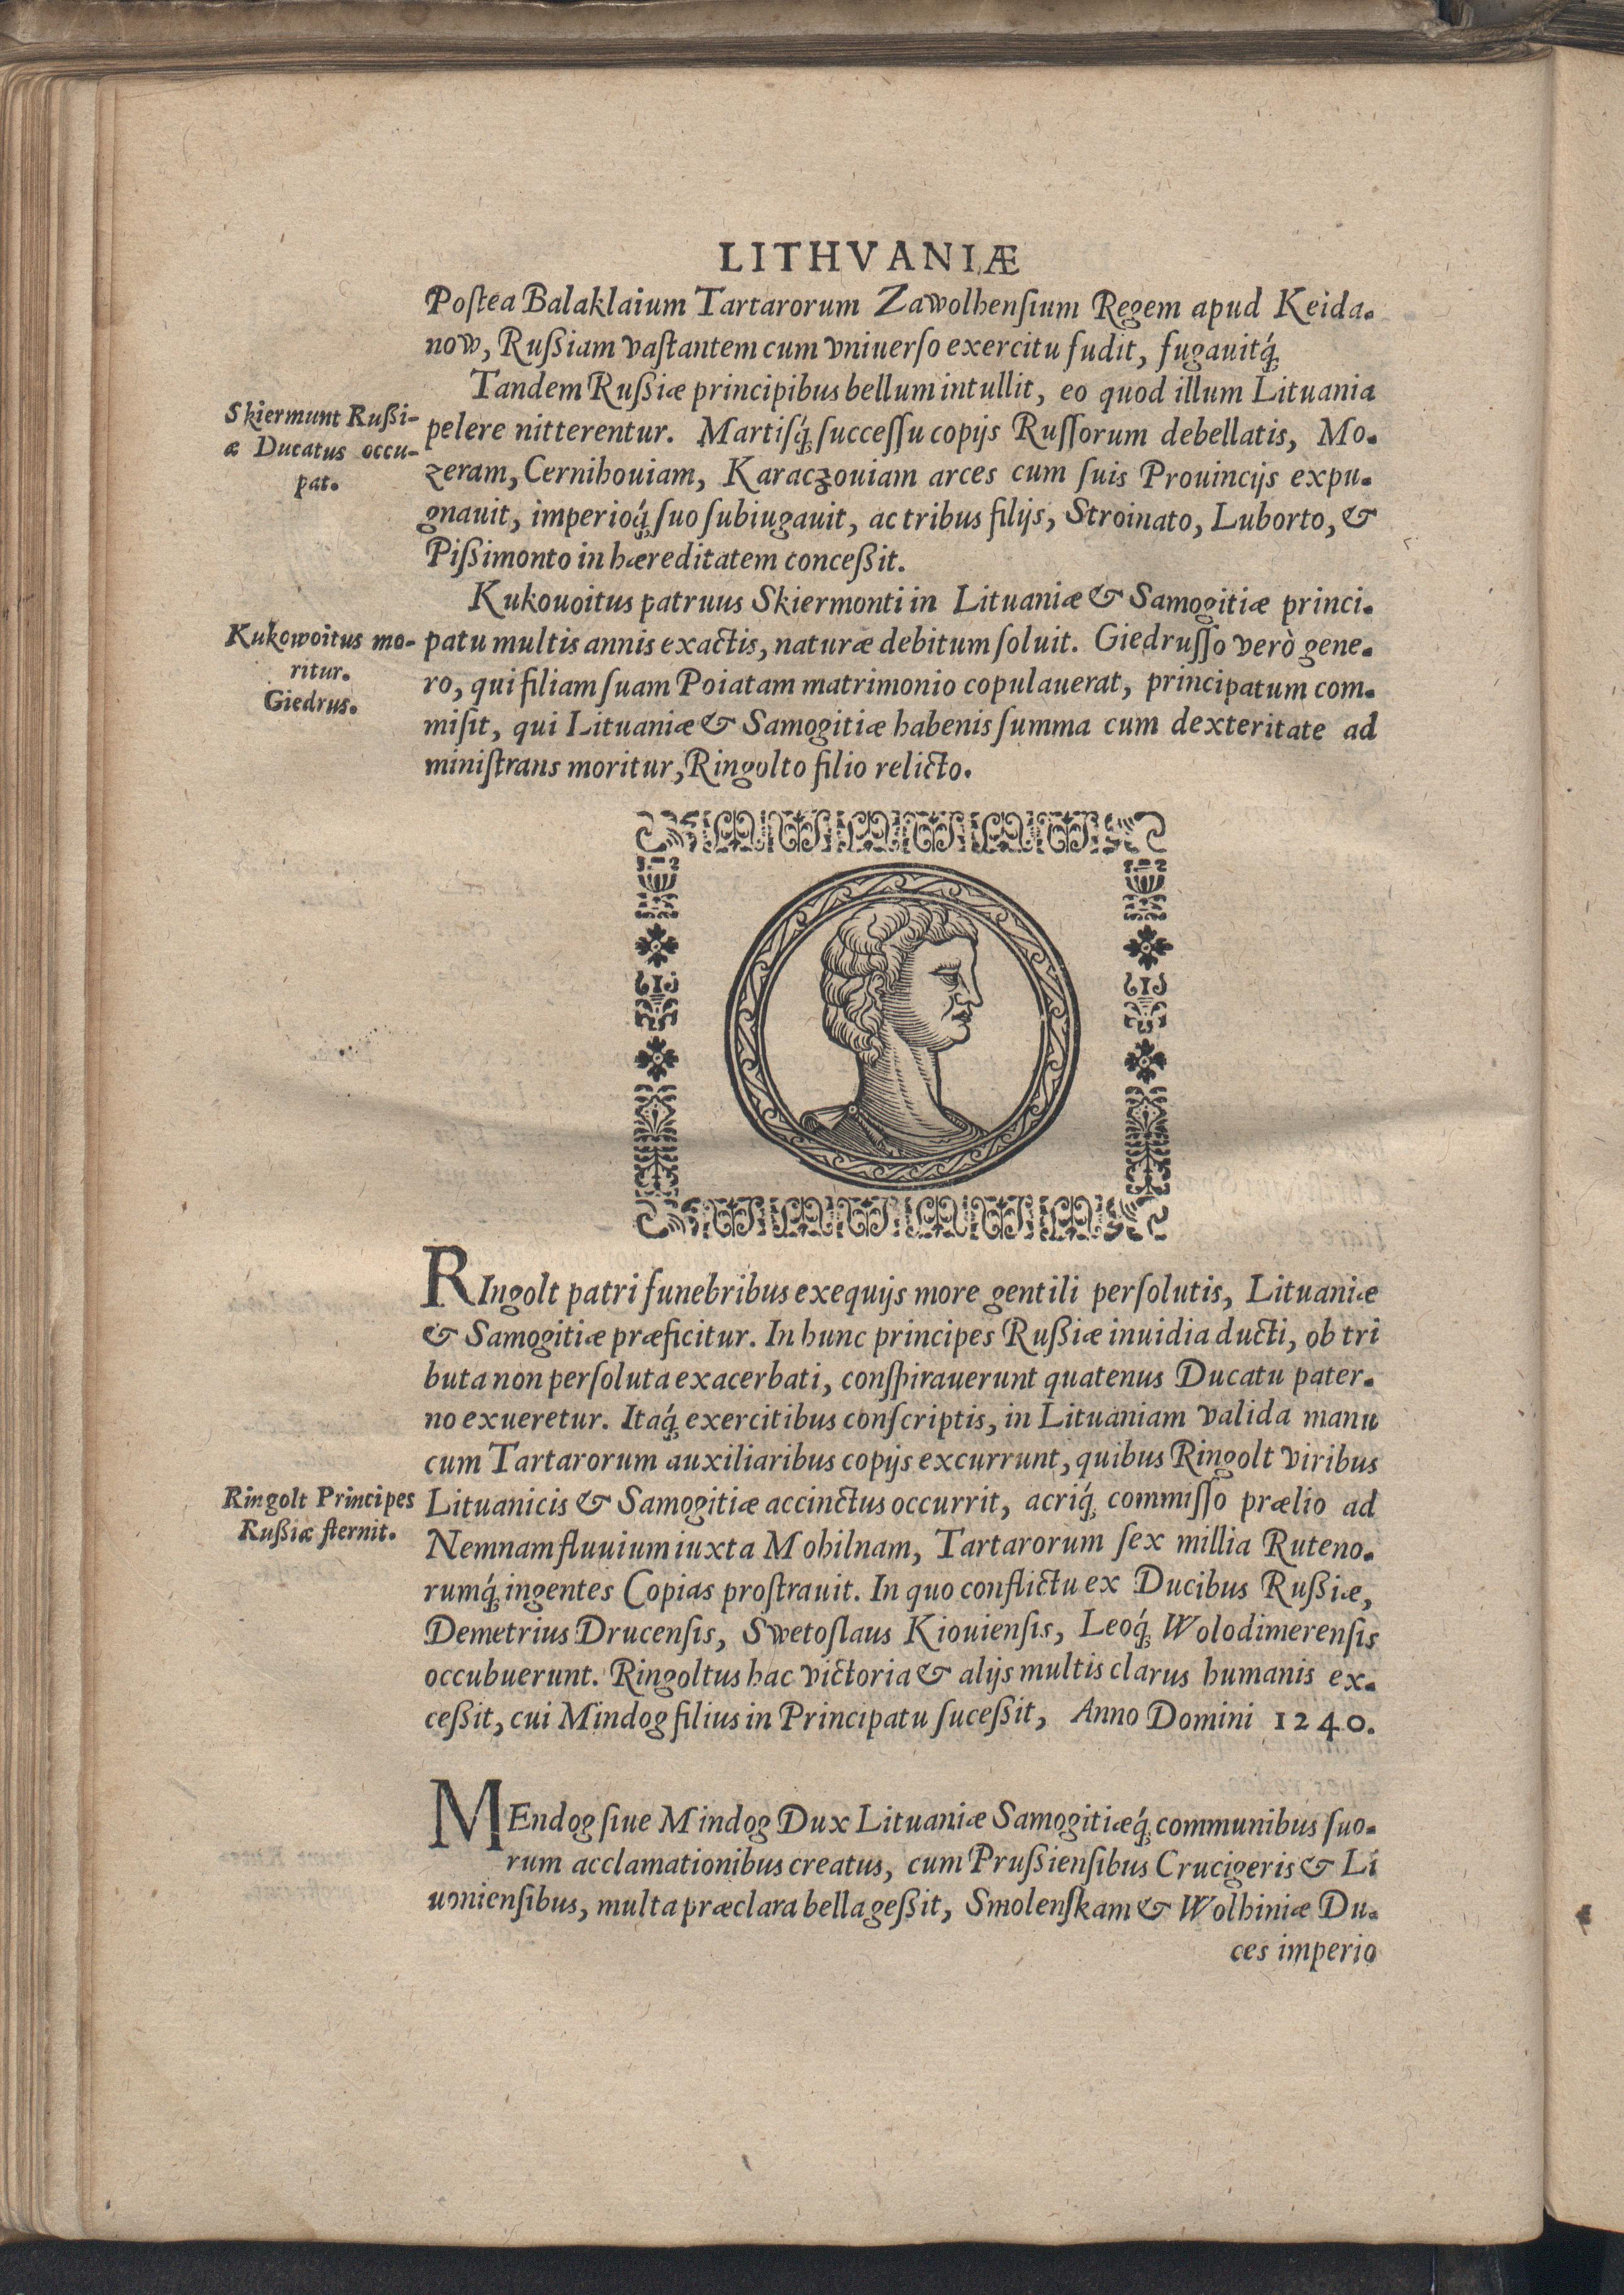 LITHVANIÆ
Poſtea Balaklaium Tartarorum Zawolhenſium Regem apud Keida-
now, Rußiam vaſtantem cum vniuerſo exercitu fudit, fugauitq́;
Tandem Rußiæ principibus bellum intullit, eo quod illum Lituania
Skiermunt Rußi-
æ Ducatus occu-
pat.
pelere nitterentur. Martiſq́; ſucceſſu copijs Ruſſorum debellatis, Mo-
zeram, Cernihouiam, Karaczouiam arces cum ſuis Prouincijs expu-
gnauit, imperioq́; ſuo ſubiugauit, ac tribus filijs, Stroinato, Luborto, &
Pißimonto in hæreditatem conceßit.
Kukouoitus patruus Skiermonti in Lituaniæ & Samogitiæ princi-
Kukowoitus mo-
ritur.
Giedrus.
patu multis annis exactis, naturæ debitum ſoluit. Giedruſſo verò gene-
ro, qui filiam ſuam Poiatam matrimonio copulauerat, principatum com-
miſit, qui Lituaniæ & Samogitiæ habenis ſumma cum dexteritate ad
miniſtrans moritur, Ringolto filio relicto.
RIngolt patri funebribus exequijs more gentili perſolutis, Lituaniæ
& Samogitiæ præficitur. In hunc principes Rußiæ inuidia ducti, ob tri
buta non perſoluta exacerbati, conſpirauerunt quatenus Ducatu pater-
no exueretur. Itaq́; exercitibus conſcriptis, in Lituaniam valida manu
cum Tartarorum auxiliaribus copijs excurrunt, quibus Ringolt viribus
Ringolt Principes
Rußiæ ſternit.
Lituanicis & Samogitiæ accinctus occurrit, acriq́; commiſſo prælio ad
Nemnam fluuium iuxta Mohilnam, Tartarorum ſex millia Ruteno-
rumq́; ingentes Copias proſtrauit. In quo conflictu ex Ducibus Rußiæ,
Demetrius Drucenſis, Swetoſlaus Kiouienſis, Leoq́; Wolodimerenſis
occubuerunt. Ringoltus hac victoria & alijs multis clarus humanis ex-
ceßit, cui Mindog filius in Principatu ſuceßit, Anno Domini 1240.
MEndog ſiue Mindog Dux Lituaniæ Samogitiæq́; communibus ſuo-
rum acclamationibus creatus, cum Prußienſibus Crucigeris & Li
uonienſibus, multa præclara bella geßit, Smolenſkam & Wolhiniæ Du-
ces imperio